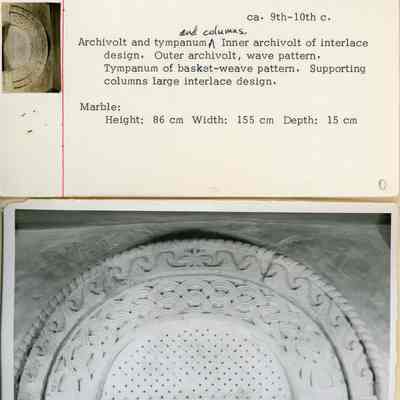 ca. 9th-10th c.
and columns.
Archivolt and tympanum ʌ Inner archivolt of interlace
design. Outer archivolt, wave pattern.
Tympanum of basket-weave pattern. Supporting
columns large interlace design.
Marble:
Height: 86 cm Width: 155 cm Depth: 15 cm